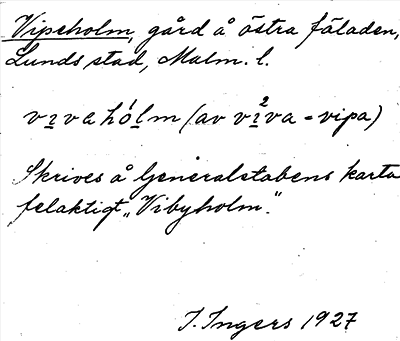 Vipeholm, gård å östra fäladen,
Lunds stad, Malm. l.
vi̲vahó̲l̲m (av vi̲²va = vipa)
Skrives å Generalstabens karta
felaktigt „Vibyholm.”
I. Ingers 1927